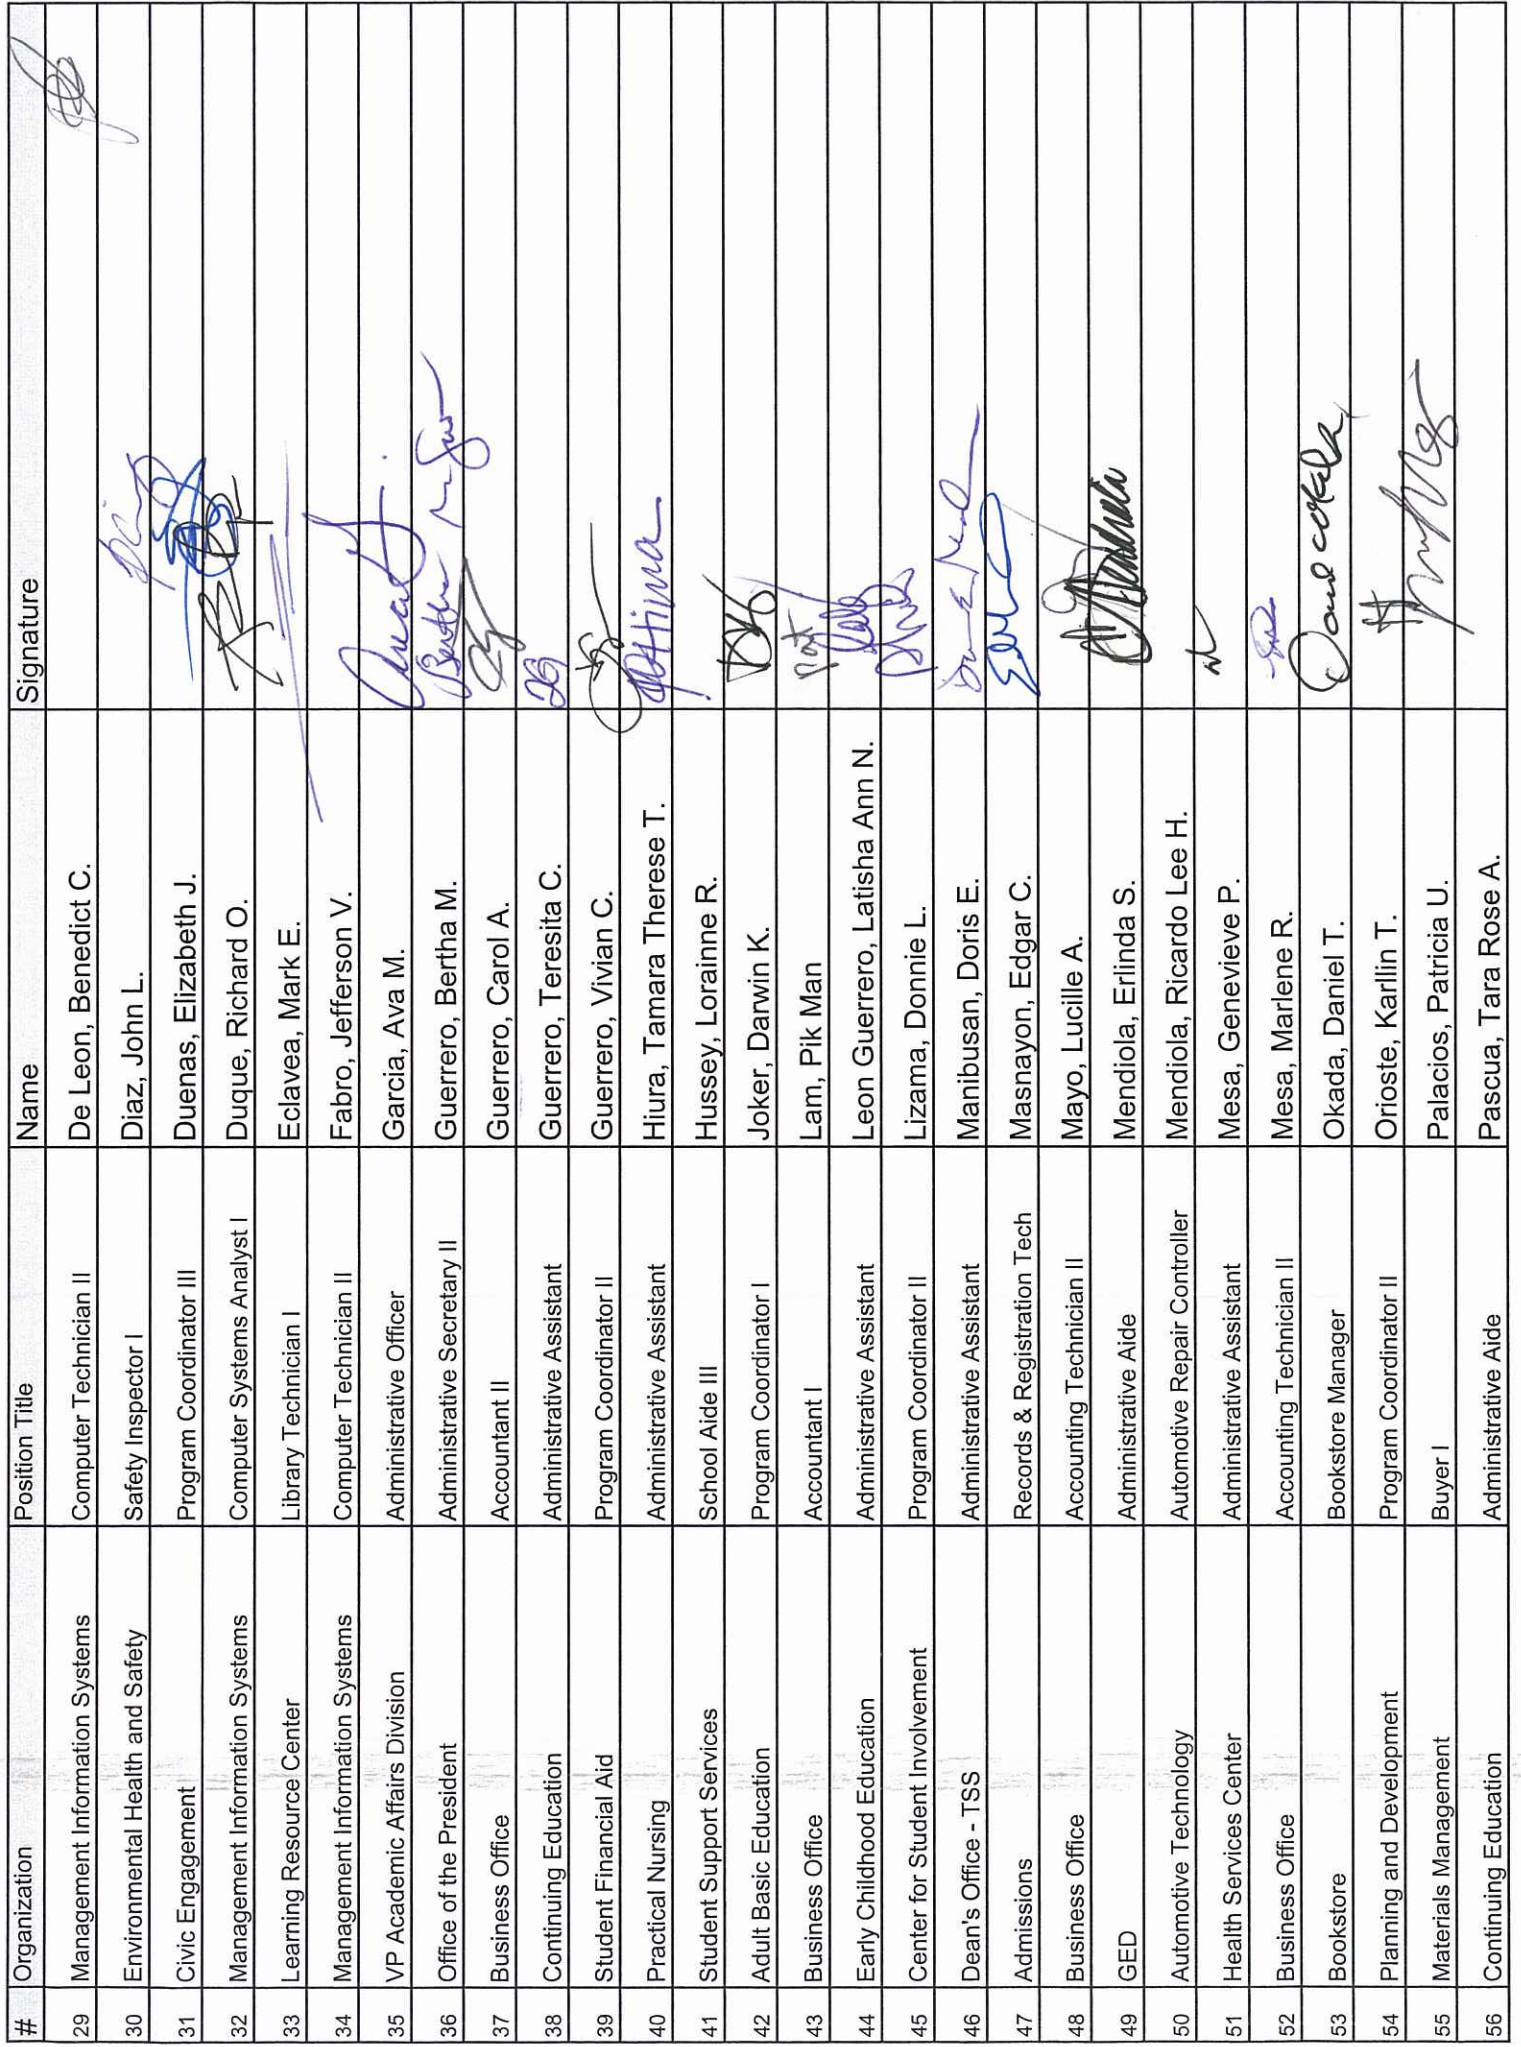 # Organization Position Title Name Signature
29 Management Information Systems Computer Technician II De Leon, Benedict C.
30 Environmental Health and Safety Safety Inspector I Diaz, John L.
31 Civic Engagement Program Coordinator III Duenas, Elizabeth J.
32 Management Information Systems Computer Systems Analyst I Duque, Richard O.
33 Learning Resource Center Library Technician I Eclavea, Mark E.
34 Management Information Systems Computer Technician II Fabro, Jefferson V.
35 VP Academic Affairs Division Administrative Officer Garcia, Ava M.
36 Office of the President Administrative Secretary II Guerrero, Bertha M.
37 Business Office Accountant II Guerrero, Carol A.
38 Continuing Education Administrative Assistant Guerrero, Teresita C.
39 Student Financial Aid Program Coordinator II Guerrero, Vivian C.
40 Practical Nursing Administrative Assistant Hiura, Tamara Therese T.
41 Student Support Services School Aide III Hussey, Lorainne R.
42 Adult Basic Education Program Coordinator I Joker, Darwin K.
43 Business Office Accountant I Lam, Pik Man
44 Early Childhood Education Administrative Assistant Leon Guerrero, Latisha Ann N.
45 Center for Student Involvement Program Coordinator II Lizama, Donnie L.
46 Dean's Office - TSS Administrative Assistant Manibusan, Doris E.
47 Admissions Records & Registration Tech Masnayon, Edgar C.
48 Business Office Accounting Technician II Mayo, Lucille A.
49 GED Administrative Aide Mendiola, Erlinda S.
50 Automotive Technology Automotive Repair Controller Mendiola, Ricardo Lee H.
51 Health Services Center Administrative Assistant Mesa, Genevieve P.
52 Business Office Accounting Technician II Mesa, Marlene R.
53 Bookstore Bookstore Manager Okada, Daniel T.
54 Planning and Development Program Coordinator II Orioste, Karllin T.
55 Materials Management Buyer I Palacios, Patricia U.
56 Continuing Education Administrative Aide Pascua, Tara Rose A.